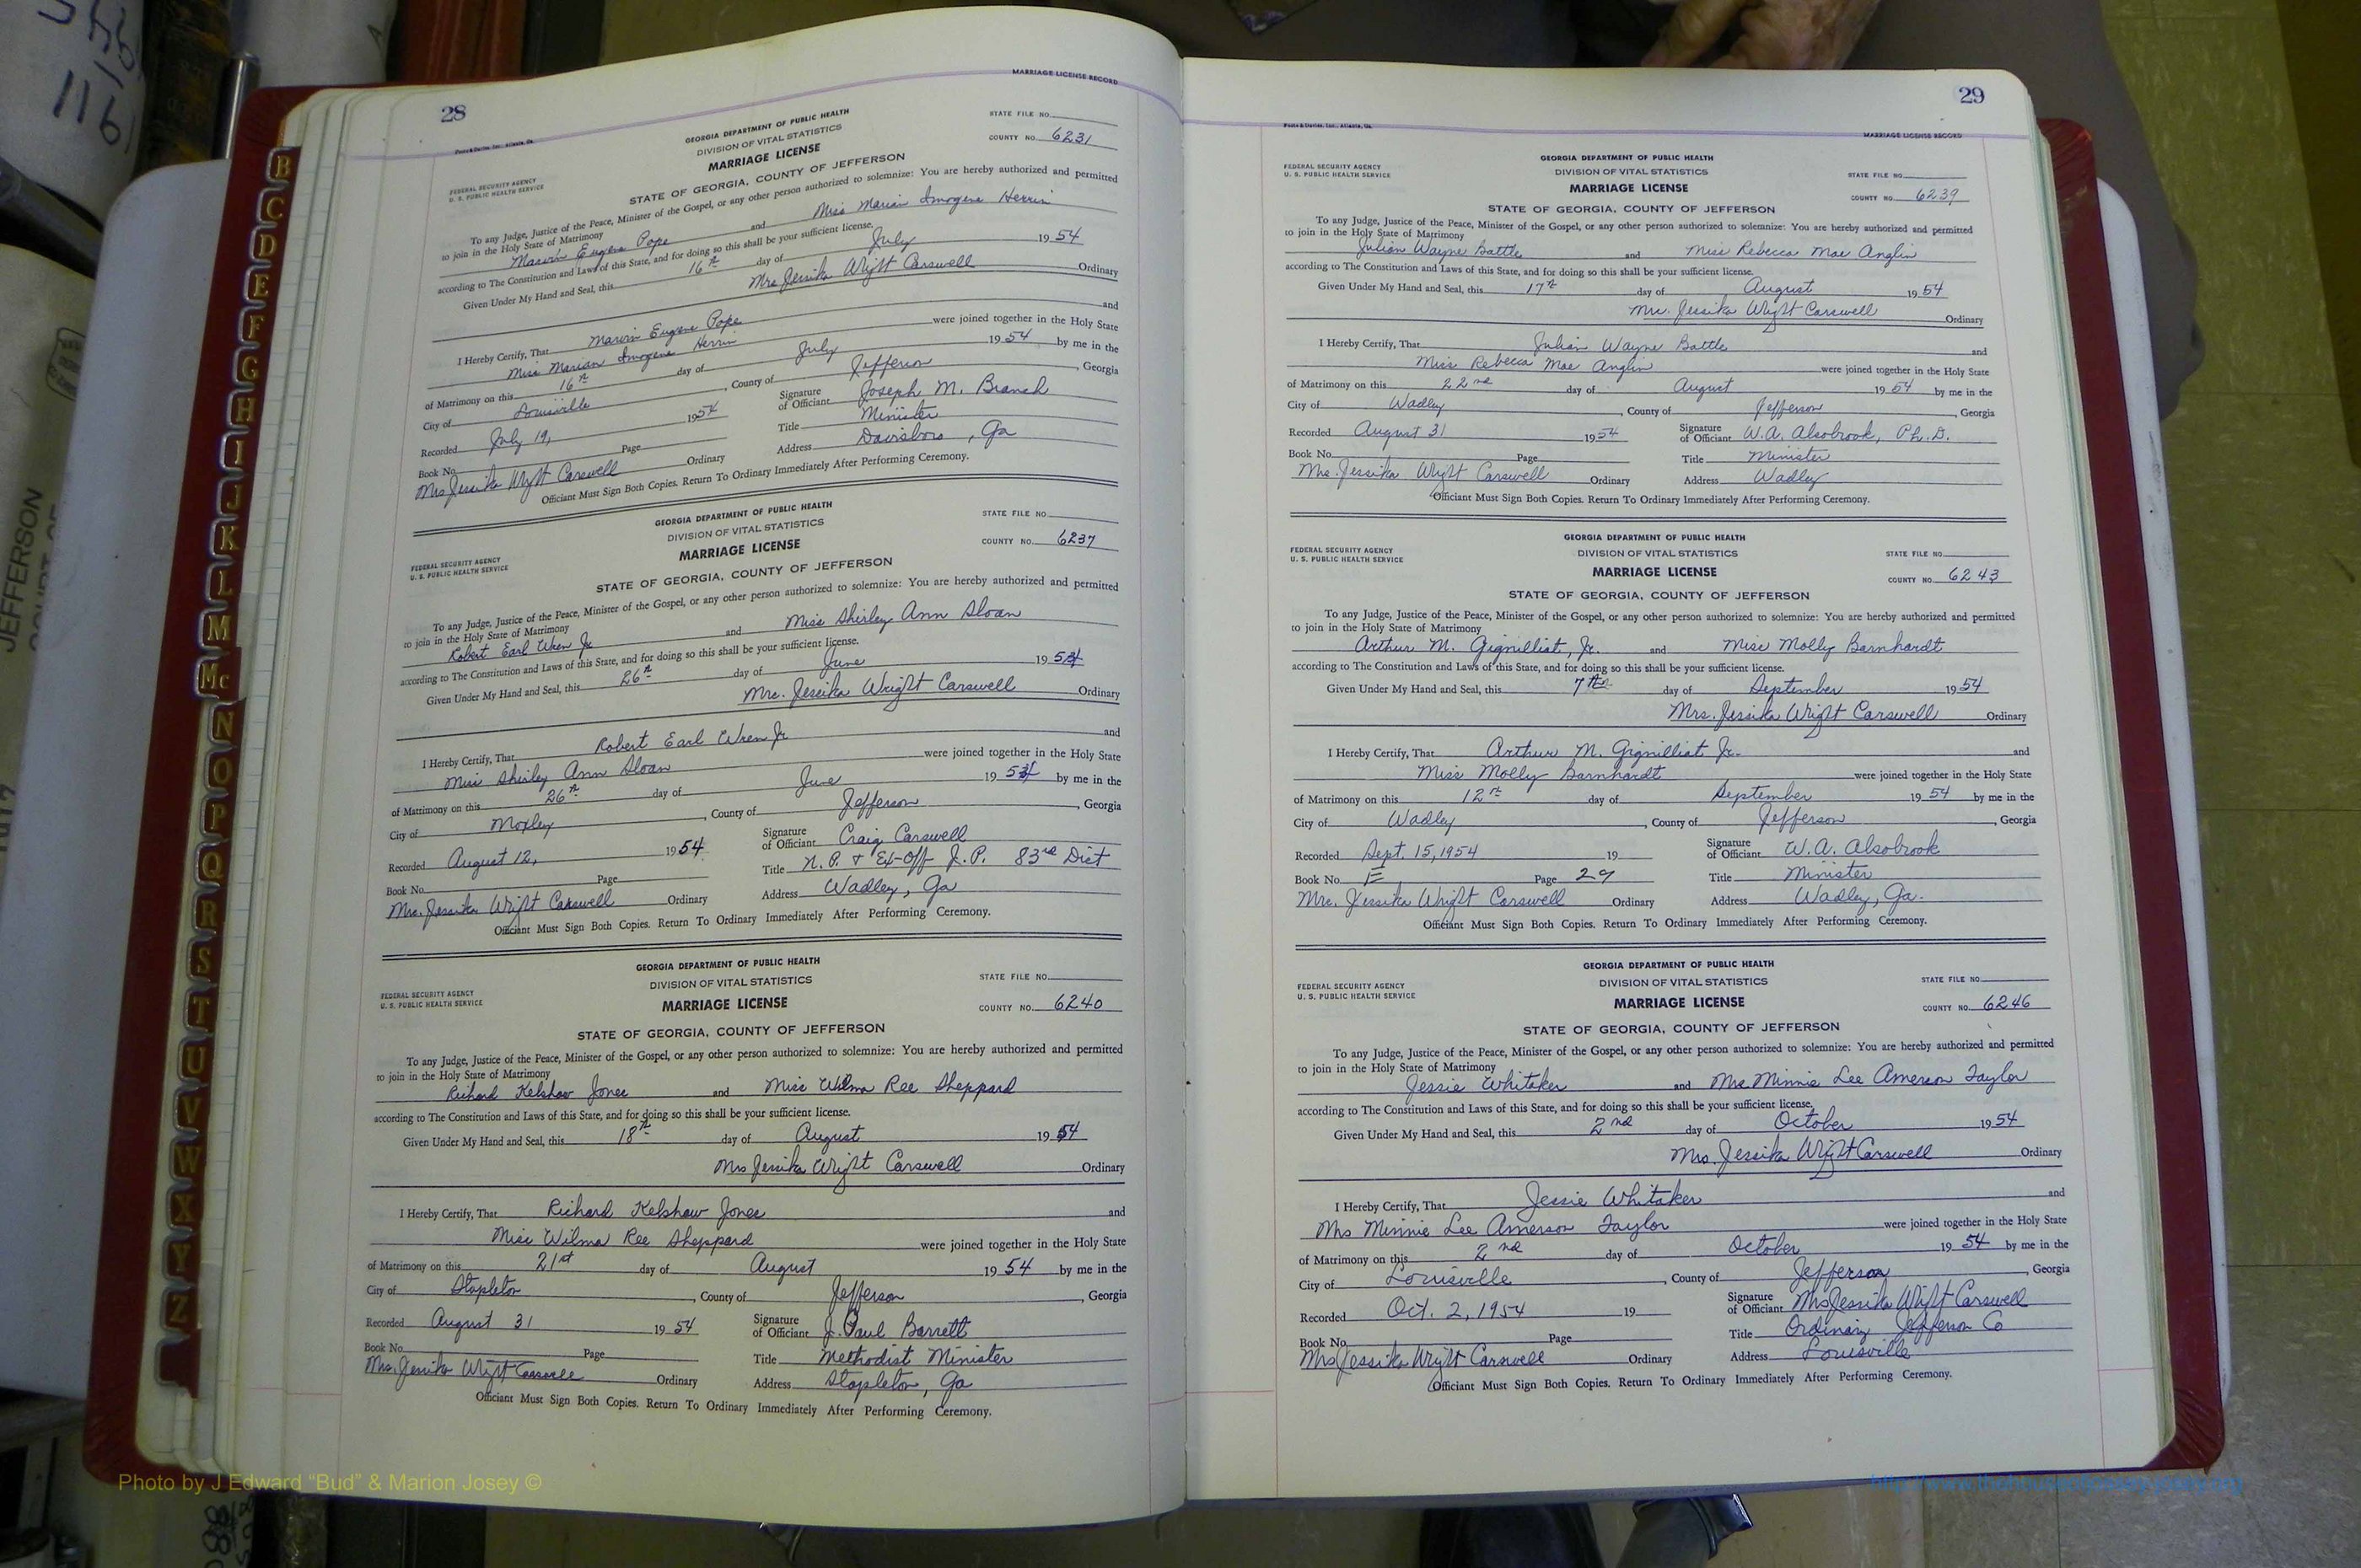 28
MARRIAGE LICENSE RECORD
GEORGIA DEPARTMENT OF PUBLIC HEALTH
DIVISION OF VITAL STATISTICS
MARRIAGE LICENSE
STATE FILE NO.
COUNTY NO. 6231
FEDERAL SECURITY AGENCY
U. S. PUBLIC HEALTH SERVICE
STATE OF GEORGIA, COUNTY OF JEFFERSON
To any Judge, Justice of the Peace, Minister of the Gospel, or any other person authorized to solemnize: You are hereby authorized and permitted
to join in the Holy State of Matrimony
Marvin Eugene Pope and Miss Marian Imogene Herrin
according to The Constitution and Laws of this State, and for doing so this shall be your sufficient license.
Given Under My Hand and Seal, this 16th day of July 1954
Mrs. Jessika Wright Carswell Ordinary
I Hereby Certify, That Marvin Eugene Pope and
Miss Marian Imogene Herrin were joined together in the Holy State
of Matrimony on this 16th day of July 1954 by me in the
City of Louisville, County of Jefferson, Georgia
Recorded July 19, 1954 Signature of Officiant Joseph M. Branch
Book No. Page Title Minister
Mrs Jessika Wright Carswell Ordinary Address Davisboro, Ga
Officiant Must Sign Both Copies. Return To Ordinary Immediately After Performing Ceremony.
GEORGIA DEPARTMENT OF PUBLIC HEALTH
DIVISION OF VITAL STATISTICS
MARRIAGE LICENSE
STATE FILE NO.
COUNTY NO. 6237
FEDERAL SECURITY AGENCY
U. S. PUBLIC HEALTH SERVICE
STATE OF GEORGIA, COUNTY OF JEFFERSON
To any Judge, Justice of the Peace, Minister of the Gospel, or any other person authorized to solemnize: You are hereby authorized and permitted
to join in the Holy State of Matrimony
Robert Earl Wren Jr and Miss Shirley Ann Sloan
according to The Constitution and Laws of this State, and for doing so this shall be your sufficient license.
Given Under My Hand and Seal, this 26th day of June 1954
Mrs. Jessika Wright Carswell Ordinary
I Hereby Certify, That Robert Earl Wren Jr and
Miss Shirley Ann Sloan were joined together in the Holy State
of Matrimony on this 26th day of June 1954 by me in the
City of Moxley, County of Jefferson, Georgia
Recorded August 12, 1954 Signature of Officiant Craig Carswell
Book No. Page Title N. P. & Ex-Off J. P. 83rd Dist
Mrs. Jessika Wright Carswell Ordinary Address Wadley, Ga
Officiant Must Sign Both Copies. Return To Ordinary Immediately After Performing Ceremony.
GEORGIA DEPARTMENT OF PUBLIC HEALTH
DIVISION OF VITAL STATISTICS
MARRIAGE LICENSE
STATE FILE NO.
COUNTY NO. 6240
FEDERAL SECURITY AGENCY
U. S. PUBLIC HEALTH SERVICE
STATE OF GEORGIA, COUNTY OF JEFFERSON
To any Judge, Justice of the Peace, Minister of the Gospel, or any other person authorized to solemnize: You are hereby authorized and permitted
to join in the Holy State of Matrimony
Richard Kelshaw Jones and Miss Wilma Ree Sheppard
according to The Constitution and Laws of this State, and for doing so this shall be your sufficient license.
Given Under My Hand and Seal, this 18th day of August 1954
Mrs Jessika Wright Carswell Ordinary
I Hereby Certify, That Richard Kelshaw Jones and
Miss Wilma Ree Sheppard were joined together in the Holy State
of Matrimony on this 21st day of August 1954 by me in the
City of Stapleton, County of Jefferson, Georgia
Recorded August 31 1954 Signature of Officiant J. Paul Barrett
Book No. Page Title Methodist Minister
Mrs. Jessika Wright Carswell Ordinary Address Stapleton, Ga
Officiant Must Sign Both Copies. Return To Ordinary Immediately After Performing Ceremony.
29
MARRIAGE LICENSE RECORD
GEORGIA DEPARTMENT OF PUBLIC HEALTH
DIVISION OF VITAL STATISTICS
MARRIAGE LICENSE
STATE FILE NO.
COUNTY NO. 6239
FEDERAL SECURITY AGENCY
U. S. PUBLIC HEALTH SERVICE
STATE OF GEORGIA, COUNTY OF JEFFERSON
To any Judge, Justice of the Peace, Minister of the Gospel, or any other person authorized to solemnize: You are hereby authorized and permitted
to join in the Holy State of Matrimony
Julian Wayne Battle and Miss Rebecca Mae Anglin
according to The Constitution and Laws of this State, and for doing so this shall be your sufficient license.
Given Under My Hand and Seal, this 17th day of August 1954
Mrs. Jessika Wright Carswell Ordinary
I Hereby Certify, That Julian Wayne Battle and
Miss Rebecca Mae Anglin were joined together in the Holy State
of Matrimony on this 22nd day of August 1954 by me in the
City of Wadley, County of Jefferson, Georgia
Recorded August 31 1954 Signature of Officiant W. A. Alsobrook, Ph. D.
Book No. Page Title Minister
Mrs. Jessika Wright Carswell Ordinary Address Wadley
Officiant Must Sign Both Copies. Return To Ordinary Immediately After Performing Ceremony.
GEORGIA DEPARTMENT OF PUBLIC HEALTH
DIVISION OF VITAL STATISTICS
MARRIAGE LICENSE
STATE FILE NO.
COUNTY NO. 6243
FEDERAL SECURITY AGENCY
U. S. PUBLIC HEALTH SERVICE
STATE OF GEORGIA, COUNTY OF JEFFERSON
To any Judge, Justice of the Peace, Minister of the Gospel, or any other person authorized to solemnize: You are hereby authorized and permitted
to join in the Holy State of Matrimony
Arthur M. Gignilliat, Jr. and Miss Molly Barnhardt
according to The Constitution and Laws of this State, and for doing so this shall be your sufficient license.
Given Under My Hand and Seal, this 7th day of September 1954
Mrs. Jessika Wright Carswell Ordinary
I Hereby Certify, That Arthur M. Gignilliat Jr. and
Miss Molly Barnhardt were joined together in the Holy State
of Matrimony on this 12th day of September 1954 by me in the
City of Wadley, County of Jefferson, Georgia
Recorded Sept. 15, 1954 19 Signature of Officiant W. A. Alsobrook
Book No. E Page 29 Title Minister
Mrs. Jessika Wright Carswell Ordinary Address Wadley, Ga.
Officiant Must Sign Both Copies. Return To Ordinary Immediately After Performing Ceremony.
GEORGIA DEPARTMENT OF PUBLIC HEALTH
DIVISION OF VITAL STATISTICS
MARRIAGE LICENSE
STATE FILE NO.
COUNTY NO. 6246
FEDERAL SECURITY AGENCY
U. S. PUBLIC HEALTH SERVICE
STATE OF GEORGIA, COUNTY OF JEFFERSON
To any Judge, Justice of the Peace, Minister of the Gospel, or any other person authorized to solemnize: You are hereby authorized and permitted
to join in the Holy State of Matrimony
Jessie Whitaker and Mrs Minnie Lee Amerson Taylor
according to The Constitution and Laws of this State, and for doing so this shall be your sufficient license.
Given Under My Hand and Seal, this 2nd day of October 1954
Mrs. Jessika Wright Carswell Ordinary
I Hereby Certify, That Jessie Whitaker and
Mrs Minnie Lee Amerson Taylor were joined together in the Holy State
of Matrimony on this 2nd day of October 1954 by me in the
City of Louisville, County of Jefferson, Georgia
Recorded Oct. 2, 1954 19 Signature of Officiant Mrs Jessika Wright Carswell
Book No. Page Title Ordinary Jefferson Co
Mrs Jessika Wright Carswell Ordinary Address Louisville
Officiant Must Sign Both Copies. Return To Ordinary Immediately After Performing Ceremony.
B
C
D
E
F
G
H
I
J
K
L
M
Mc
N
O
P
Q
R
S
T
U
V
W
X
Y
Z
116
JEFFERSON
Photo by J Edward “Bud” & Marion Josey ©